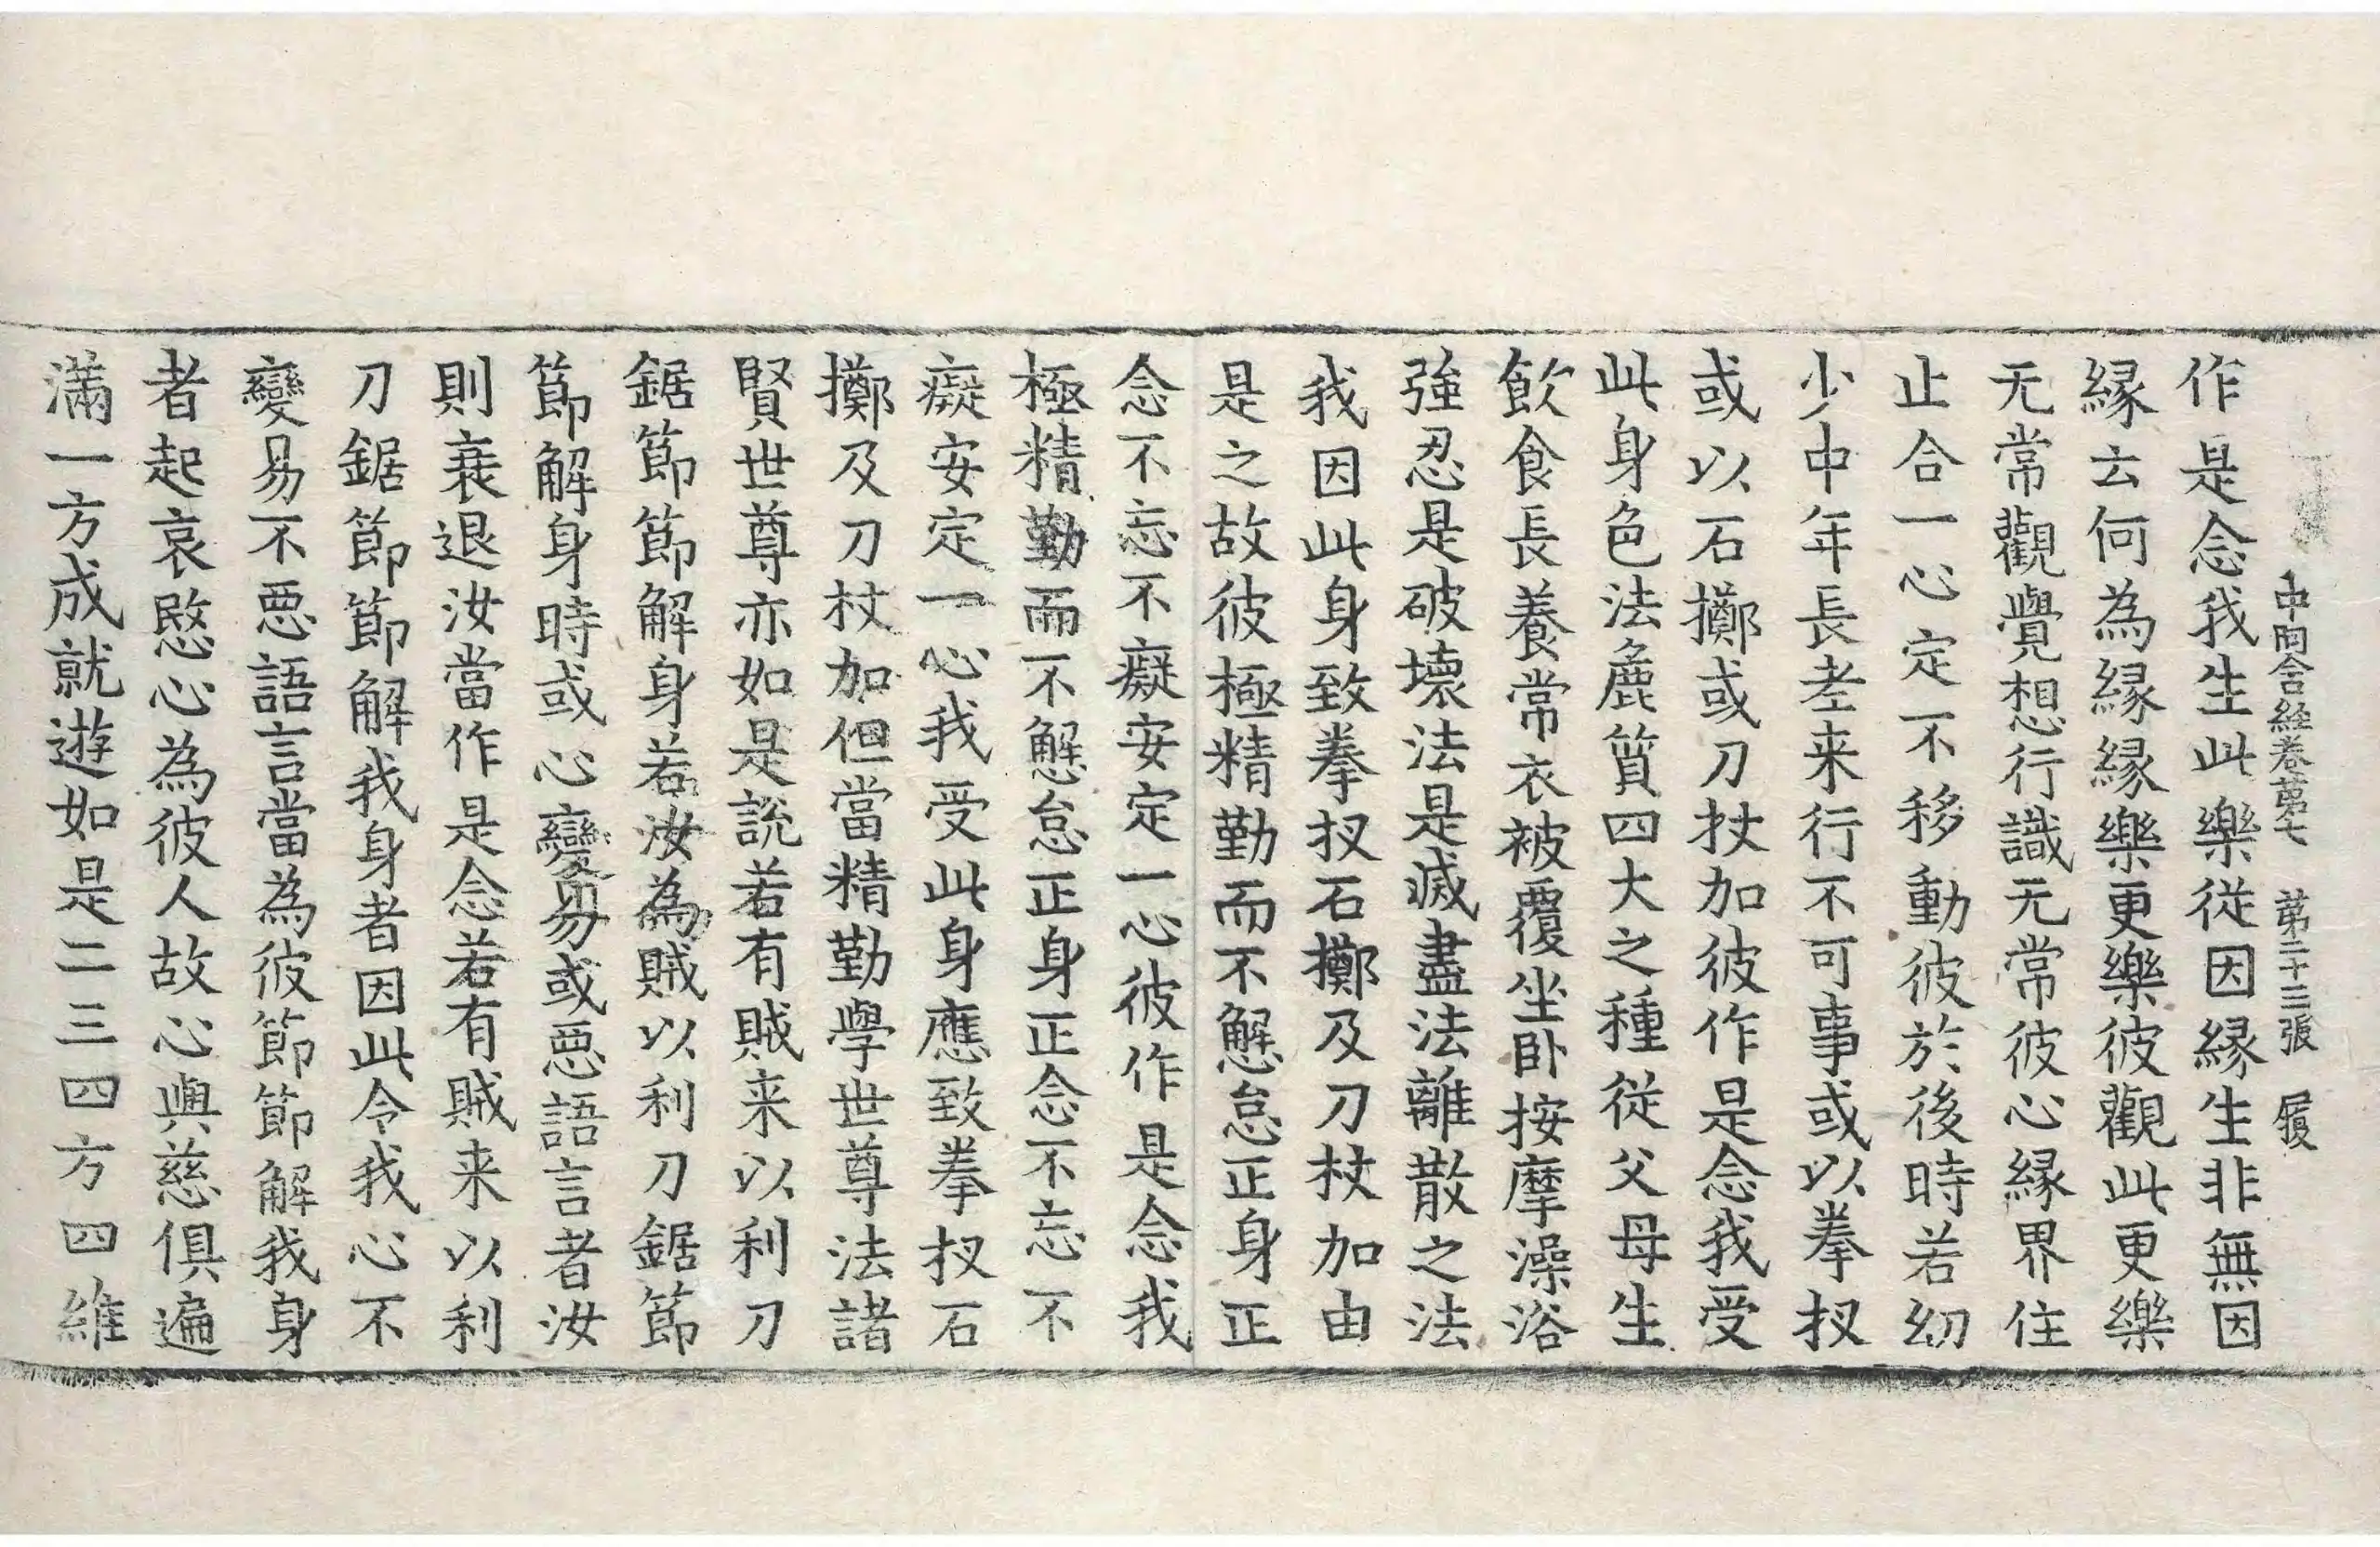 中阿含經卷第七 第二十三張 履
作是念我生此樂從因緣生非無因
緣云何為緣緣樂更樂彼觀此更樂
无常觀覺想行識无常彼心緣界住
止合一心定不移動彼於後時若幼
少中年長老来行不可事或以拳扠
或以石擲或刀杖加彼作是念我受
此身色法麁質四大之種從父母生
飲食長養常衣被覆坐卧按摩澡浴
強忍是破壞法是滅盡法離散之法
我因此身致拳扠石擲及刀杖加由
是之故彼極精勤而不懈怠正身正
念不忘不癡安定一心彼作是念我
極精勤而不懈怠正身正念不忘不
癡安定一心我受此身應致拳扠石
擲及刀杖加但當精勤學世尊法諸
賢世尊亦如是說若有賊来以利刀
鋸節節解身若汝為賊以利刀鋸節
節解身時或心變易或惡語言者汝
則衰退汝當作是念若有賊来以利
刀鋸節節解我身者因此令我心不
變易不惡語言當為彼節節解我身
者起哀愍心為彼人故心與慈俱遍
滿一方成就遊如是二三四方四維